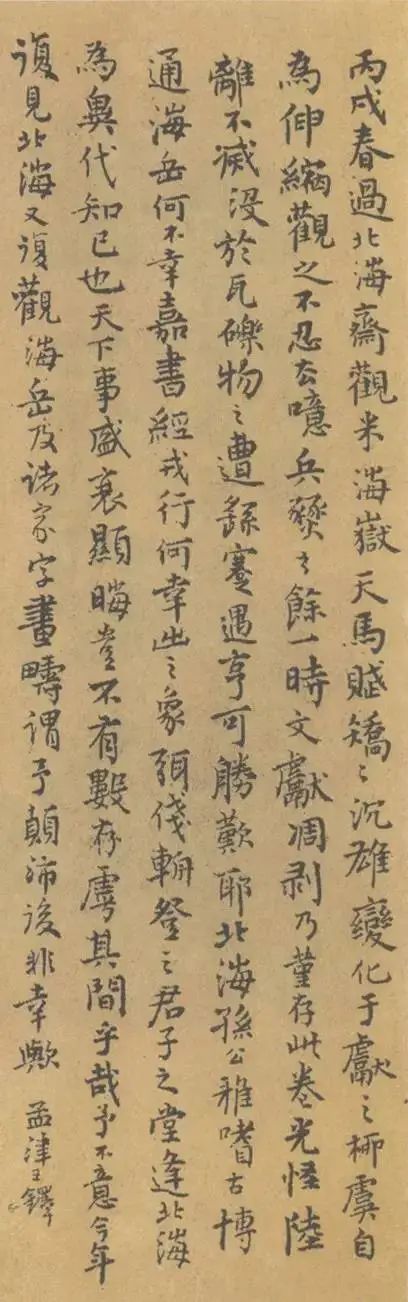 丙戌春過北海齋觀米海嶽天馬賦矯之沉雄變化于獻之柳虞自
為伸縮觀之不忍去噫兵燹之餘一時文獻凋剥乃堇存此卷光怪陸
離不滅没於瓦礫物之遭繇蹇遇亨可勝歎耶北海孫公雅嗜古博
通海岳何不幸嘉書經戎行何幸出之象弭俴輈登之君子之堂逢北海
為異代知己也天下事盛衰顯晦豈不有數存虖其間乎哉予不意今年
復見北海又復觀海岳及諸家字畫疇謂予顛沛後非幸歟 孟津王鐸